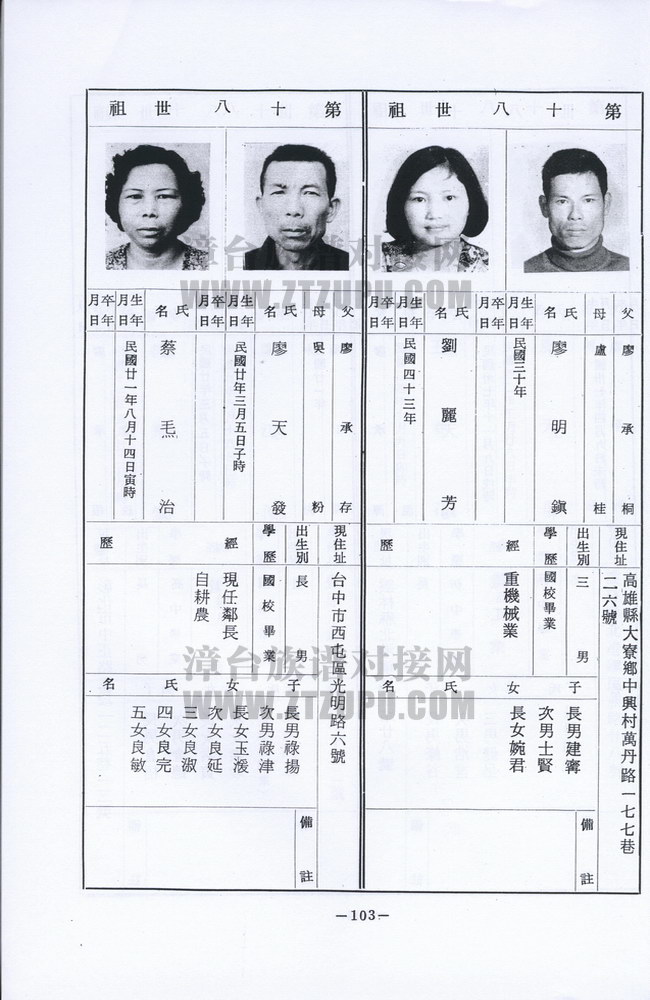 第十八世祖
父
廖承桐
母
盧桂
氏名
廖明鎮
生年月日
民國三十年
卒年月日
氏名
劉麗芳
生年月日
民國四十三年
卒年月日
現住址
高雄縣大寮鄉中興村萬丹路一七七巷
二六號
出生別
三男
學歷
國校畢業
經歷
重機械業
子女氏名
長男建寗
次男士賢
長女婉君
備註
第十八世祖
父
廖承存
母
吳粉
氏名
廖天發
生年月日
民國廿年三月五日子時
卒年月日
氏名
蔡毛治
生年月日
民國廿一年八月十四日寅時
卒年月日
現住址
台中市西屯區光明路六號
出生別
長男
學歷
國校畢業
經歷
現任鄰長
自耕農
子女氏名
長男祿揚
次男祿津
長女玉湲
次女良延
三女良淑
四女良完
五女良敏
備註
漳台族谱对接网
WWW.ZTZUPU.COM
漳台族谱对接网
WWW.ZTZUPU.COM
—103—